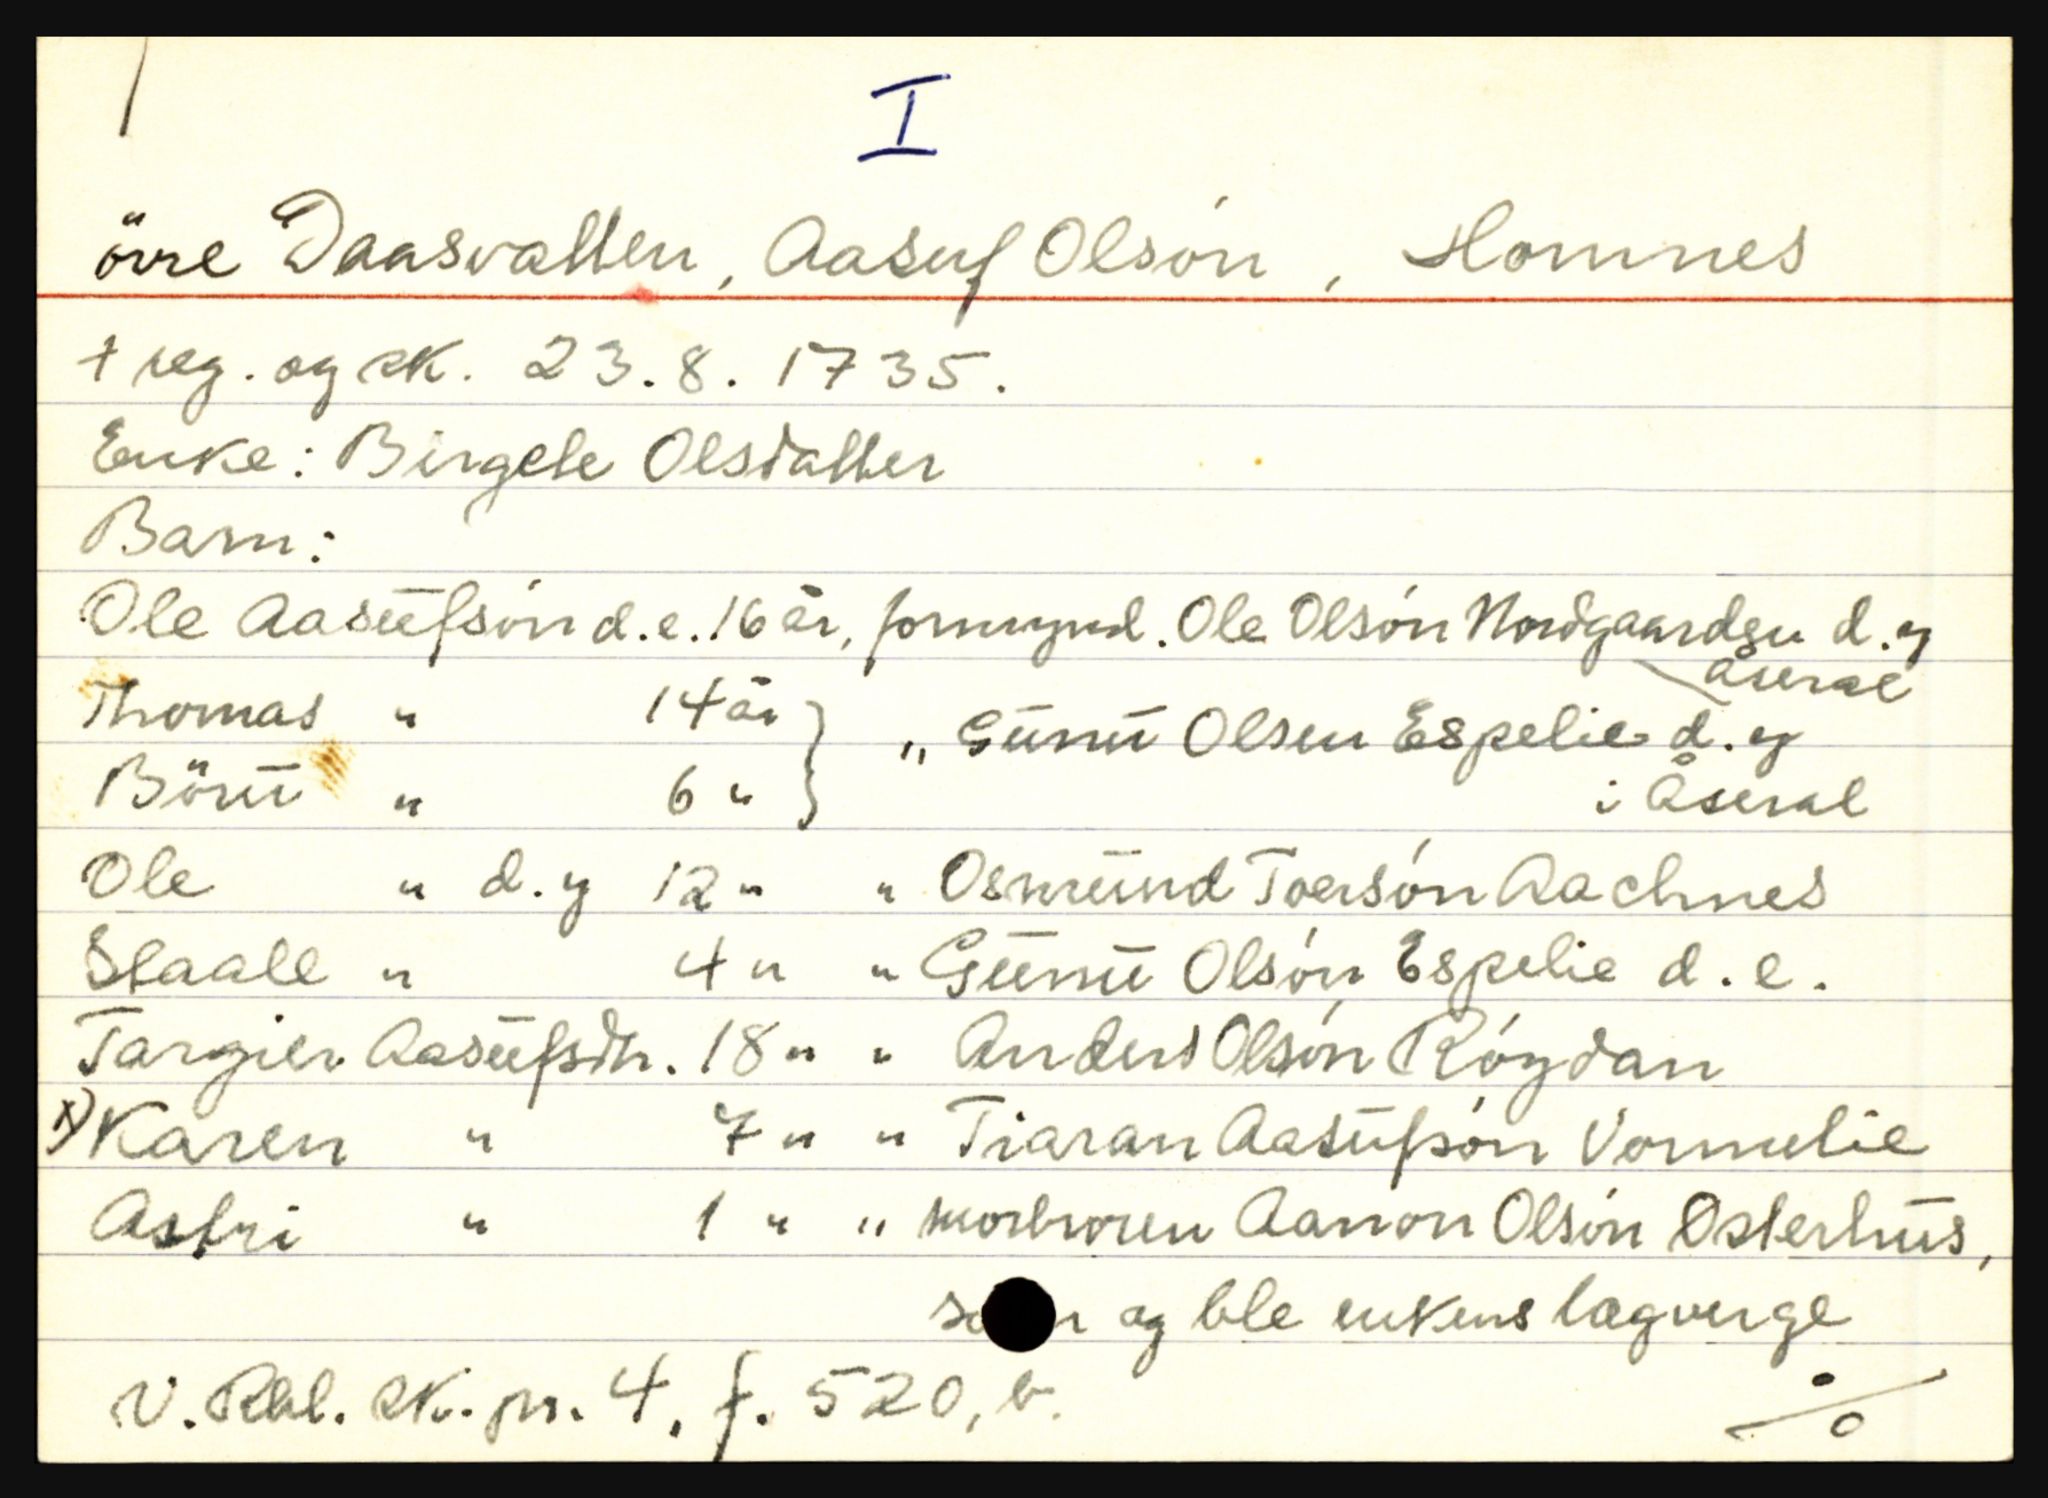 I
övre Daasvatten, Aasuf Olsón, Homnes
+ reg. og sk. 23.8.1735.
Enke: Birgete Olsdatter
Barn:
Ole Aasūfsón d.e. 16 år, formynd. Ole Olsón Nordgaarden d.y
Åseral
Thomas " 14 år } " Gūnū Olsen Espelie d.y
Börū " 6 " } i Åseral
Ole " d.y 12 " " Osmūnd Toersón Aachnes
Staale " 4 " " Gūnū Olsón Espelie d.e.
Targier Aasūfsdtr. 18 " " Anders Olsón Röydan
x) Karen " 7 " " Tiaran Aasūfsón Vormelie
Astri " 1 " " morbroren Aanon Olsón Osterhūs,
og ble enkens lagverge
V. Rbl. sk. pr. 4, f. 520, b.
%